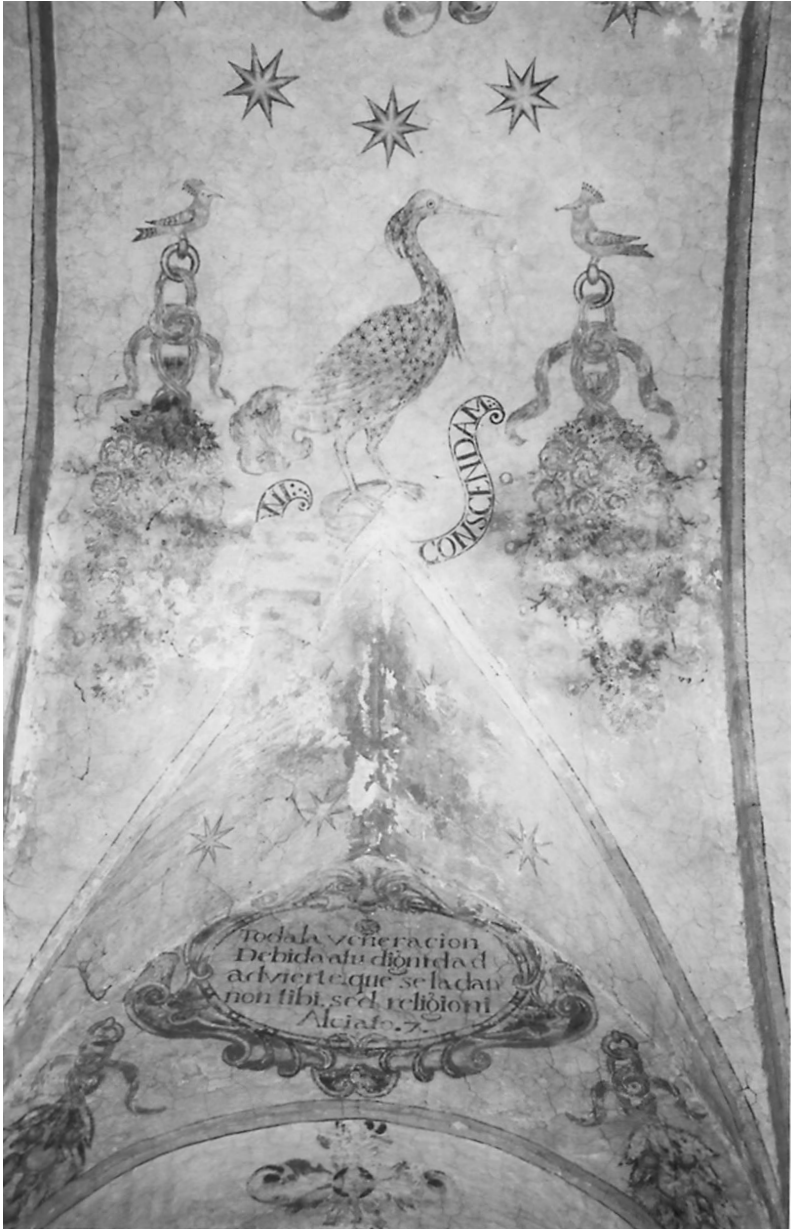 NI
CONSCENDAM
Toda la veneracion
Debida a tu dignidad
advierte que se la dan
non tibi, sed religioni
Alciato. 7.